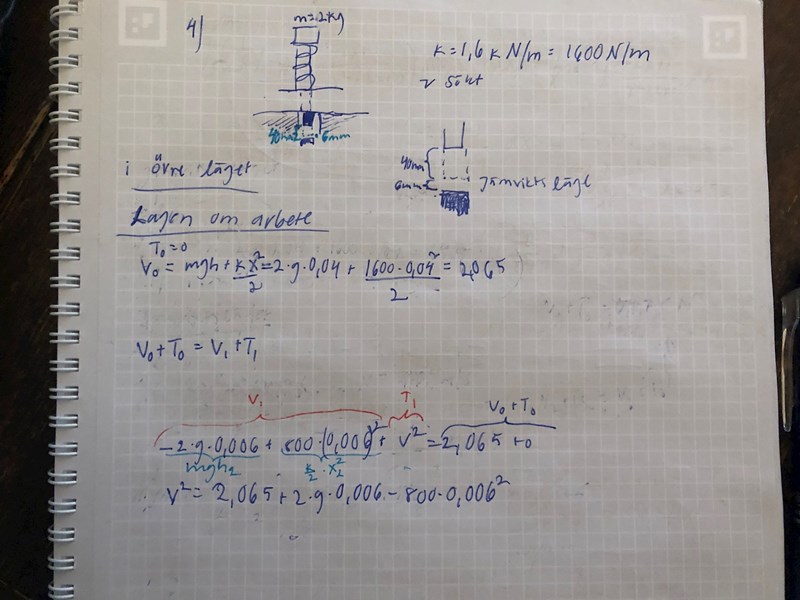 4)
m=2kg
k=1,6 k N/m = 1600 N/m
v sökt
40mm
6mm
40mm
6mm
Jämvikts läge
i övre läget
Lagen om arbete
T₀=0
V₀ = mgh + kx²/2 = 2·g·0,04 + 1600·0,04²/2 = 2,065
V₀+T₀ = V₁+T₁
V₁ T₁ V₀+T₀
-2·g·0,006 + 800·(0,006)² + v² = 2,065 + 0
mgh₂ k/2·x₂²
v² = 2,065 + 2·g·0,006 - 800·0,006²